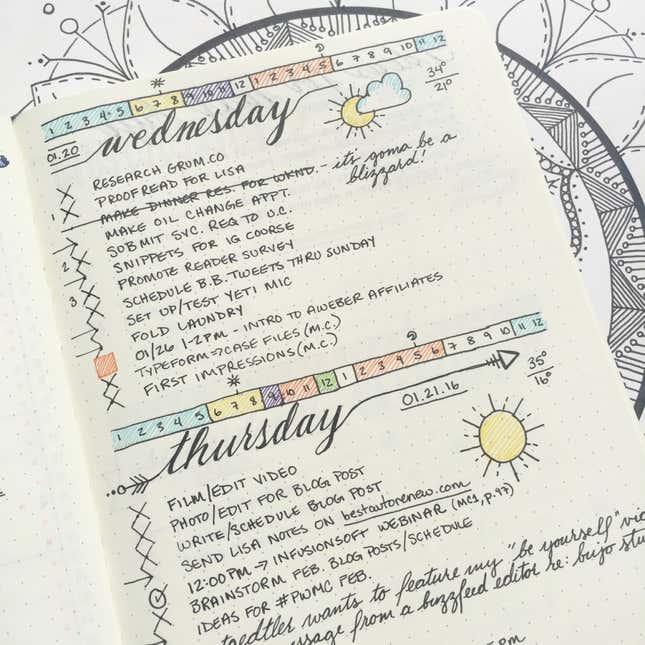 1 2 3 4 5 6 7 8 9 10 11 12 1 2 3 4 5 6 7 8 9 10 11 12
wednesday
34°
21°
01.20
RESEARCH GRUM.CO
PROOFREAD FOR LISA
1 MAKE DINNER RES. FOR WKND. - it's gonna be a
blizzard!
MAKE OIL CHANGE APPT.
SUBMIT SVC. REQ TO U.C.
SNIPPETS FOR IG COURSE
2 PROMOTE READER SURVEY
SCHEDULE B.B. TWEETS THRU SUNDAY
3 SET UP/TEST YETI MIC
FOLD LAUNDRY
01/26 1-2PM - INTRO TO AWEBER AFFILIATES
TYPEFORM => CASE FILES (M.C.)
FIRST IMPRESSIONS (M.C.)
1 2 3 4 5 6 7 8 9 10 11 12 1 2 3 4 5 6 7 8 9 10 11 12
thursday
01.21.16
35°
16°
FILM/EDIT VIDEO
PHOTO/EDIT FOR BLOG POST
WRITE/SCHEDULE BLOG POST
SEND LISA NOTES ON bestautorenew.com
12:00 PM → INFUSIONSOFT WEBINAR (MC1, p.97)
BRAINSTORM FEB. BLOG POSTS/SCHEDULE
IDEAS FOR #PWMC FEB.
wants to feature my "be yourself"
from a buzzfeed editor re: bujo